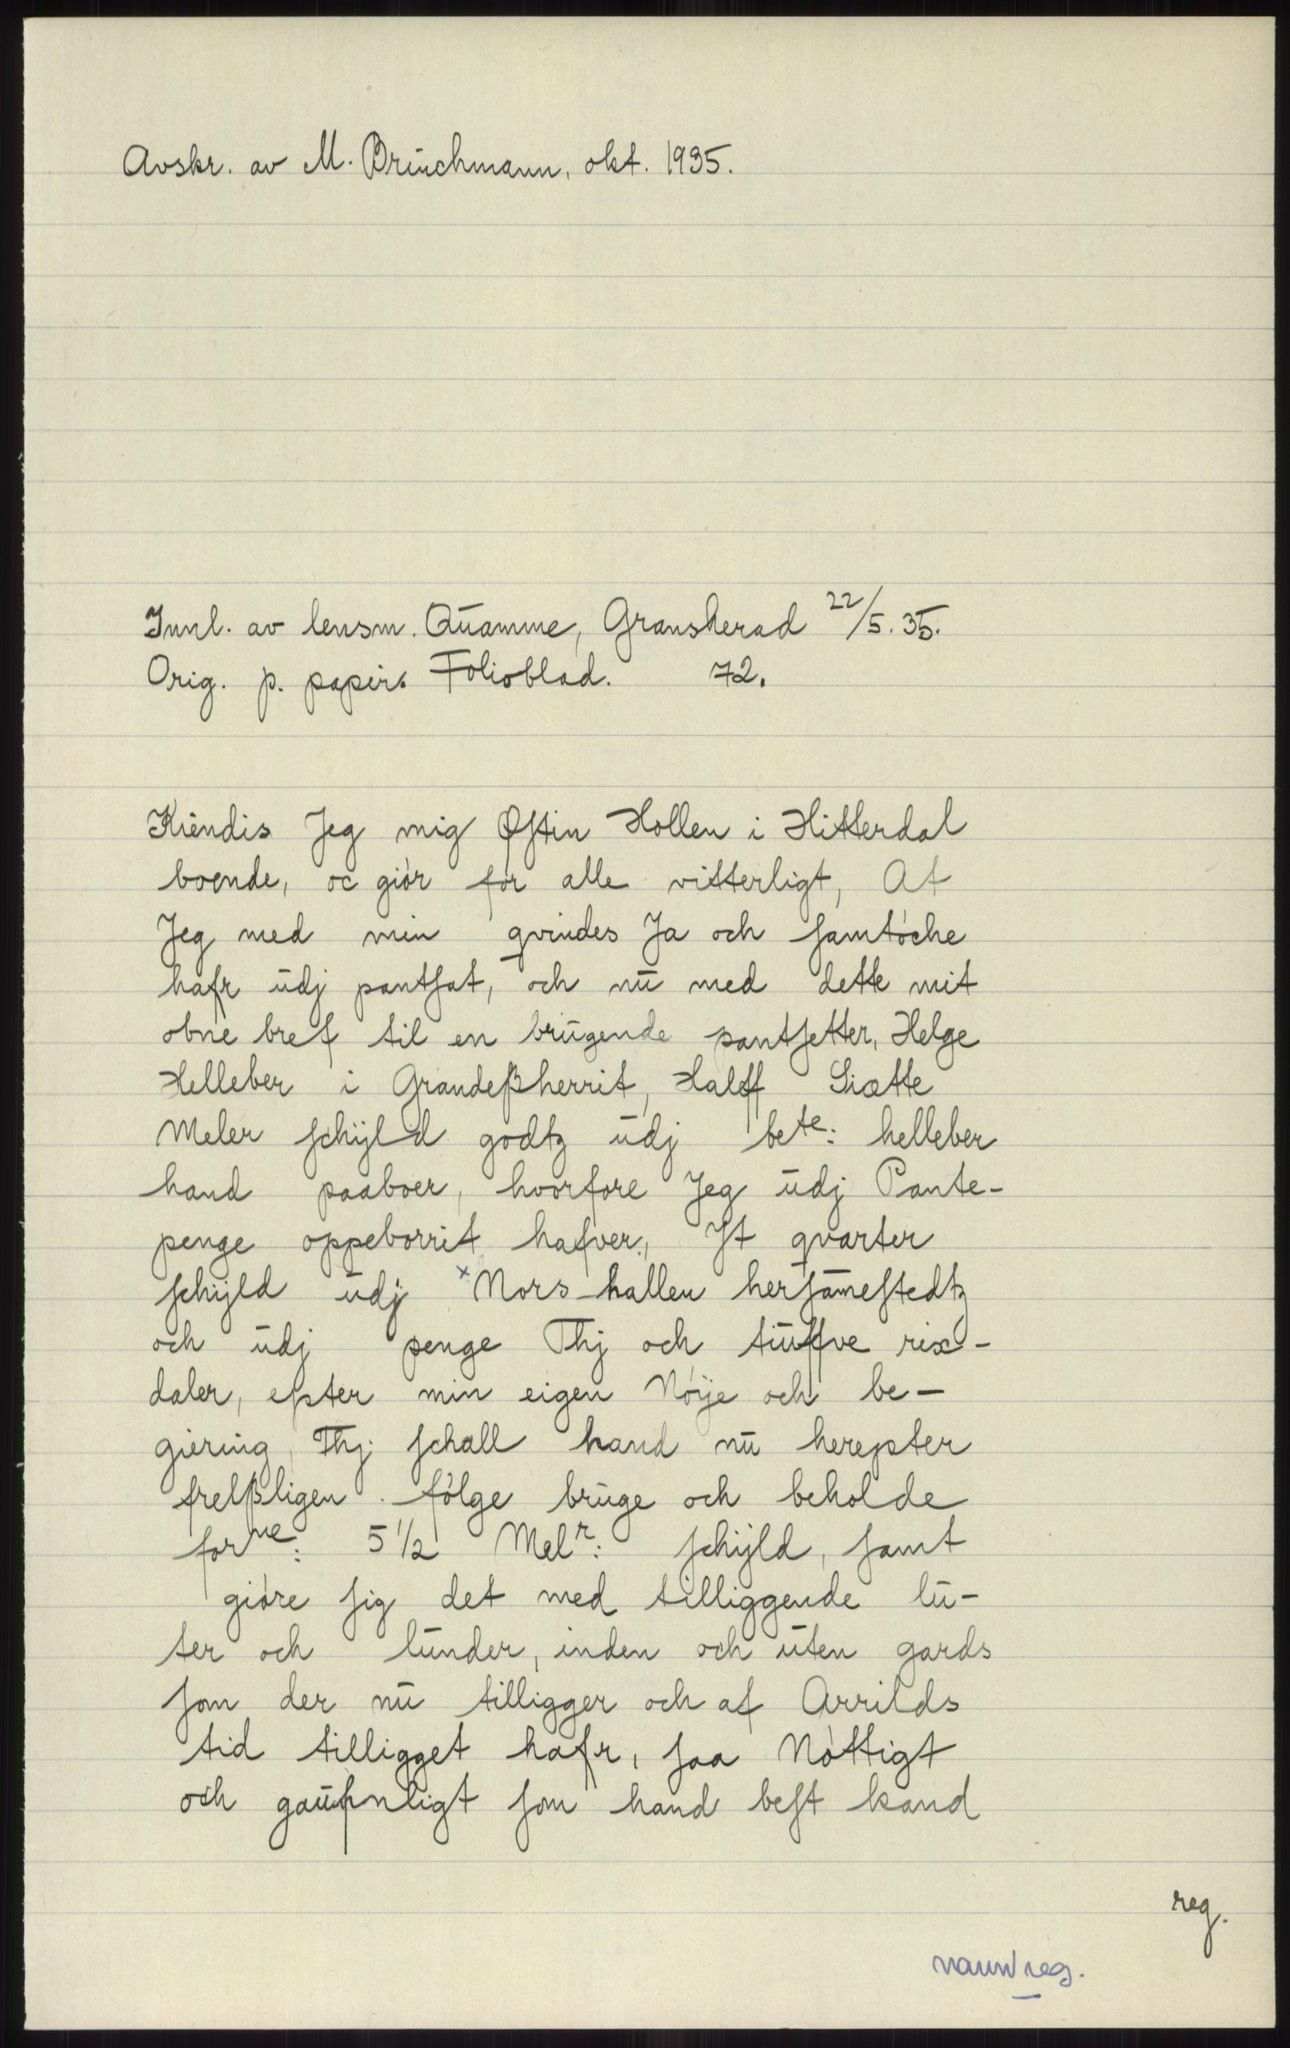 Avskr. av M. Brinchmann, okt. 1935.
Innl. av lensm. Quamme, Gransherad 22/5. 35.
Orig. p. papir. Folioblad. 72.
Kiendis Jeg mig Østin Hollen i Hitterdal
boende, oc giör for alle vitterligt, At
Jeg med min qvindes Ja och samtöche
hafr udj pantsat, och nu med dette mit
obne bref til en brugende pantsetter, Helge
Helleber i Grandeßherrit, Halff Siætte
Meler schyld godtz udj bete: helleber
hand paaboer, hvorfore Jeg udj Pante-
penge oppeborrit hafver, It qvarter
schyld udj Nors hallen hersamestedtz
och udj penge Thj och tuffve rix-
daler, efter min eigen Nöye och be-
giering, Thj schall hand nu herefter
frelßligen fölge bruge och beholde
forne: 5 1/2 Melr: schyld, samt
giöre sig det med tilliggende lu-
ter och lunder, inden och uten gards
som der nu tilligger och af Arrilds
tid tilligget hafr, saa Nöttigt
och gaufnligt som hand best kand
reg.
navnreg.